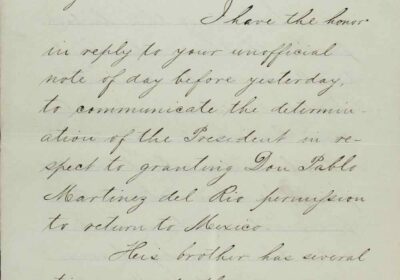 I have the honor
in reply to your unofficial
note of day before yesterday,
to communicate the determin-
ation of the President in re-
spect to granting Don Pablo
Martinez del Rio permission
to return to Mexico.
His brother has several